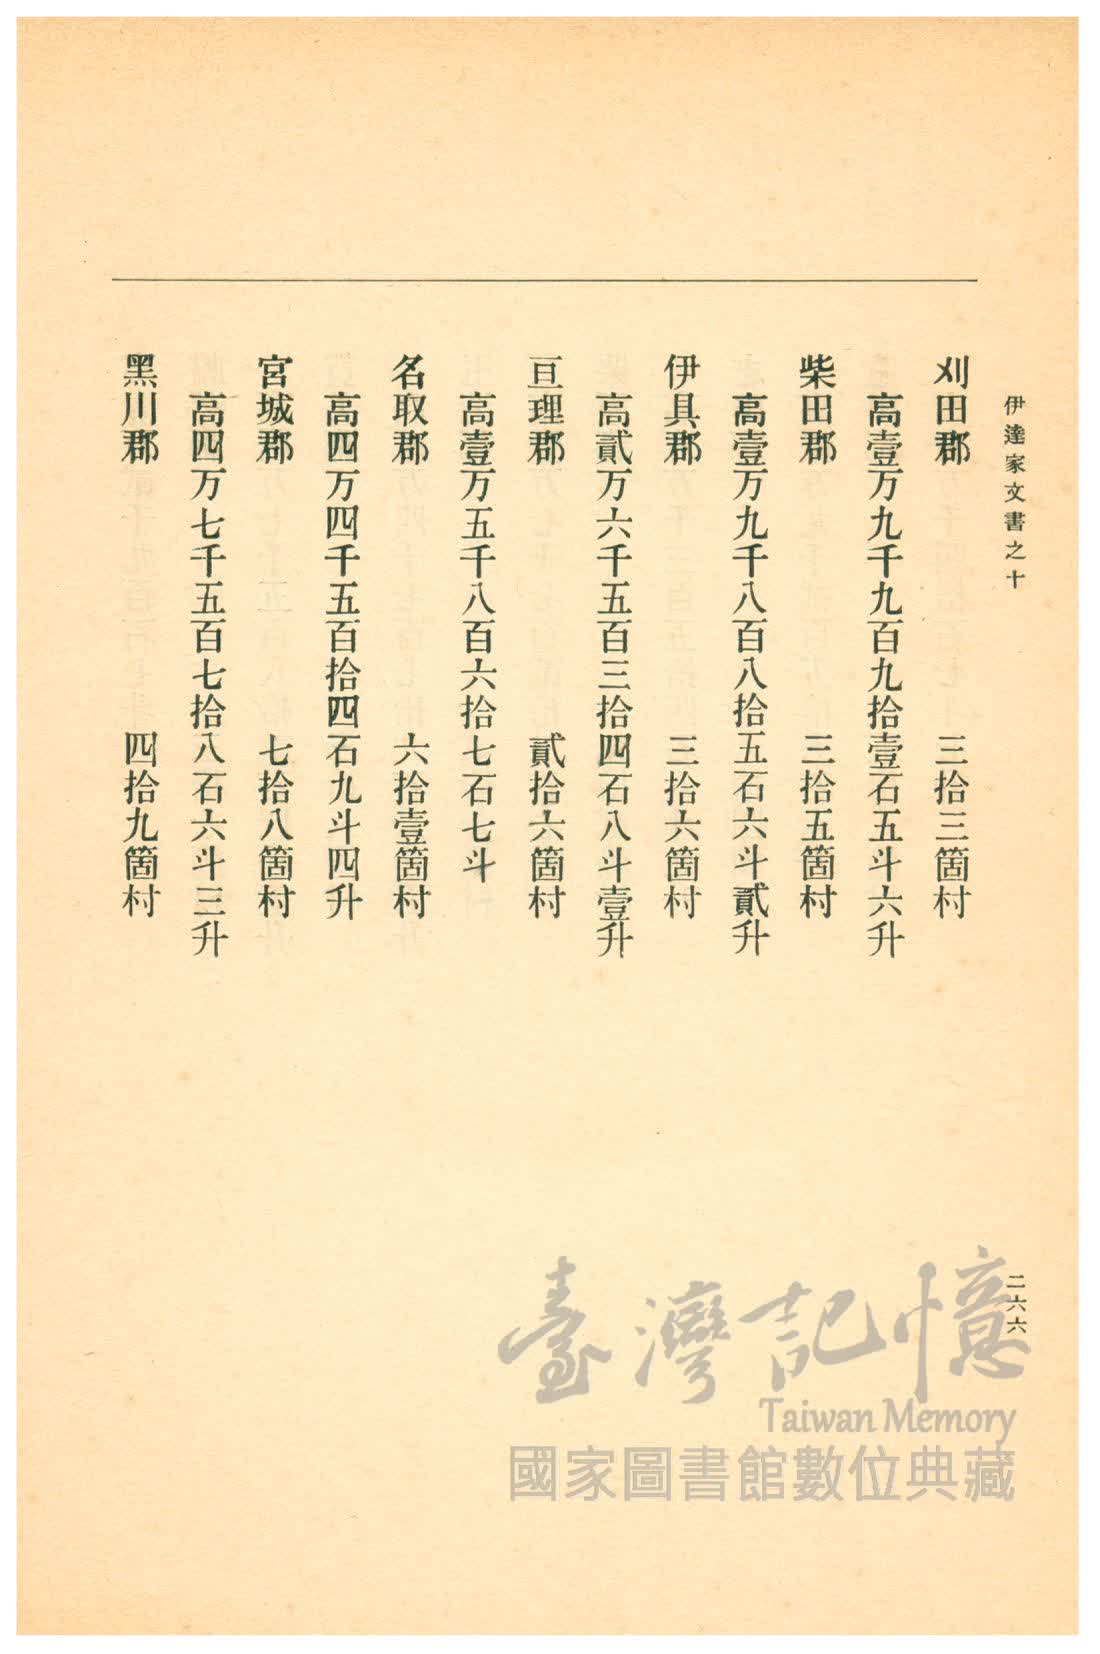 伊達家文書之十
刈田郡　三拾三箇村
高壹万九千九百九拾壹石五斗六升
柴田郡　三拾五箇村
高壹万九千八百八拾五石六斗貳升
伊具郡　三拾六箇村
高貳万六千五百三拾四石八斗壹升
亘理郡　貳拾六箇村
高壹万五千八百六拾七石七斗
名取郡　六拾壹箇村
高四万四千五百拾四石九斗四升
宮城郡　七拾八箇村
高四万七千五百七拾八石六斗三升
黑川郡　四拾九箇村
二六六
臺灣記憶
Taiwan Memory
國家圖書館數位典藏